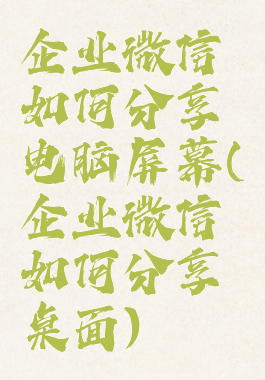 企业微信
如何分享
电脑屏幕(
企业微信
如何分享
桌面)